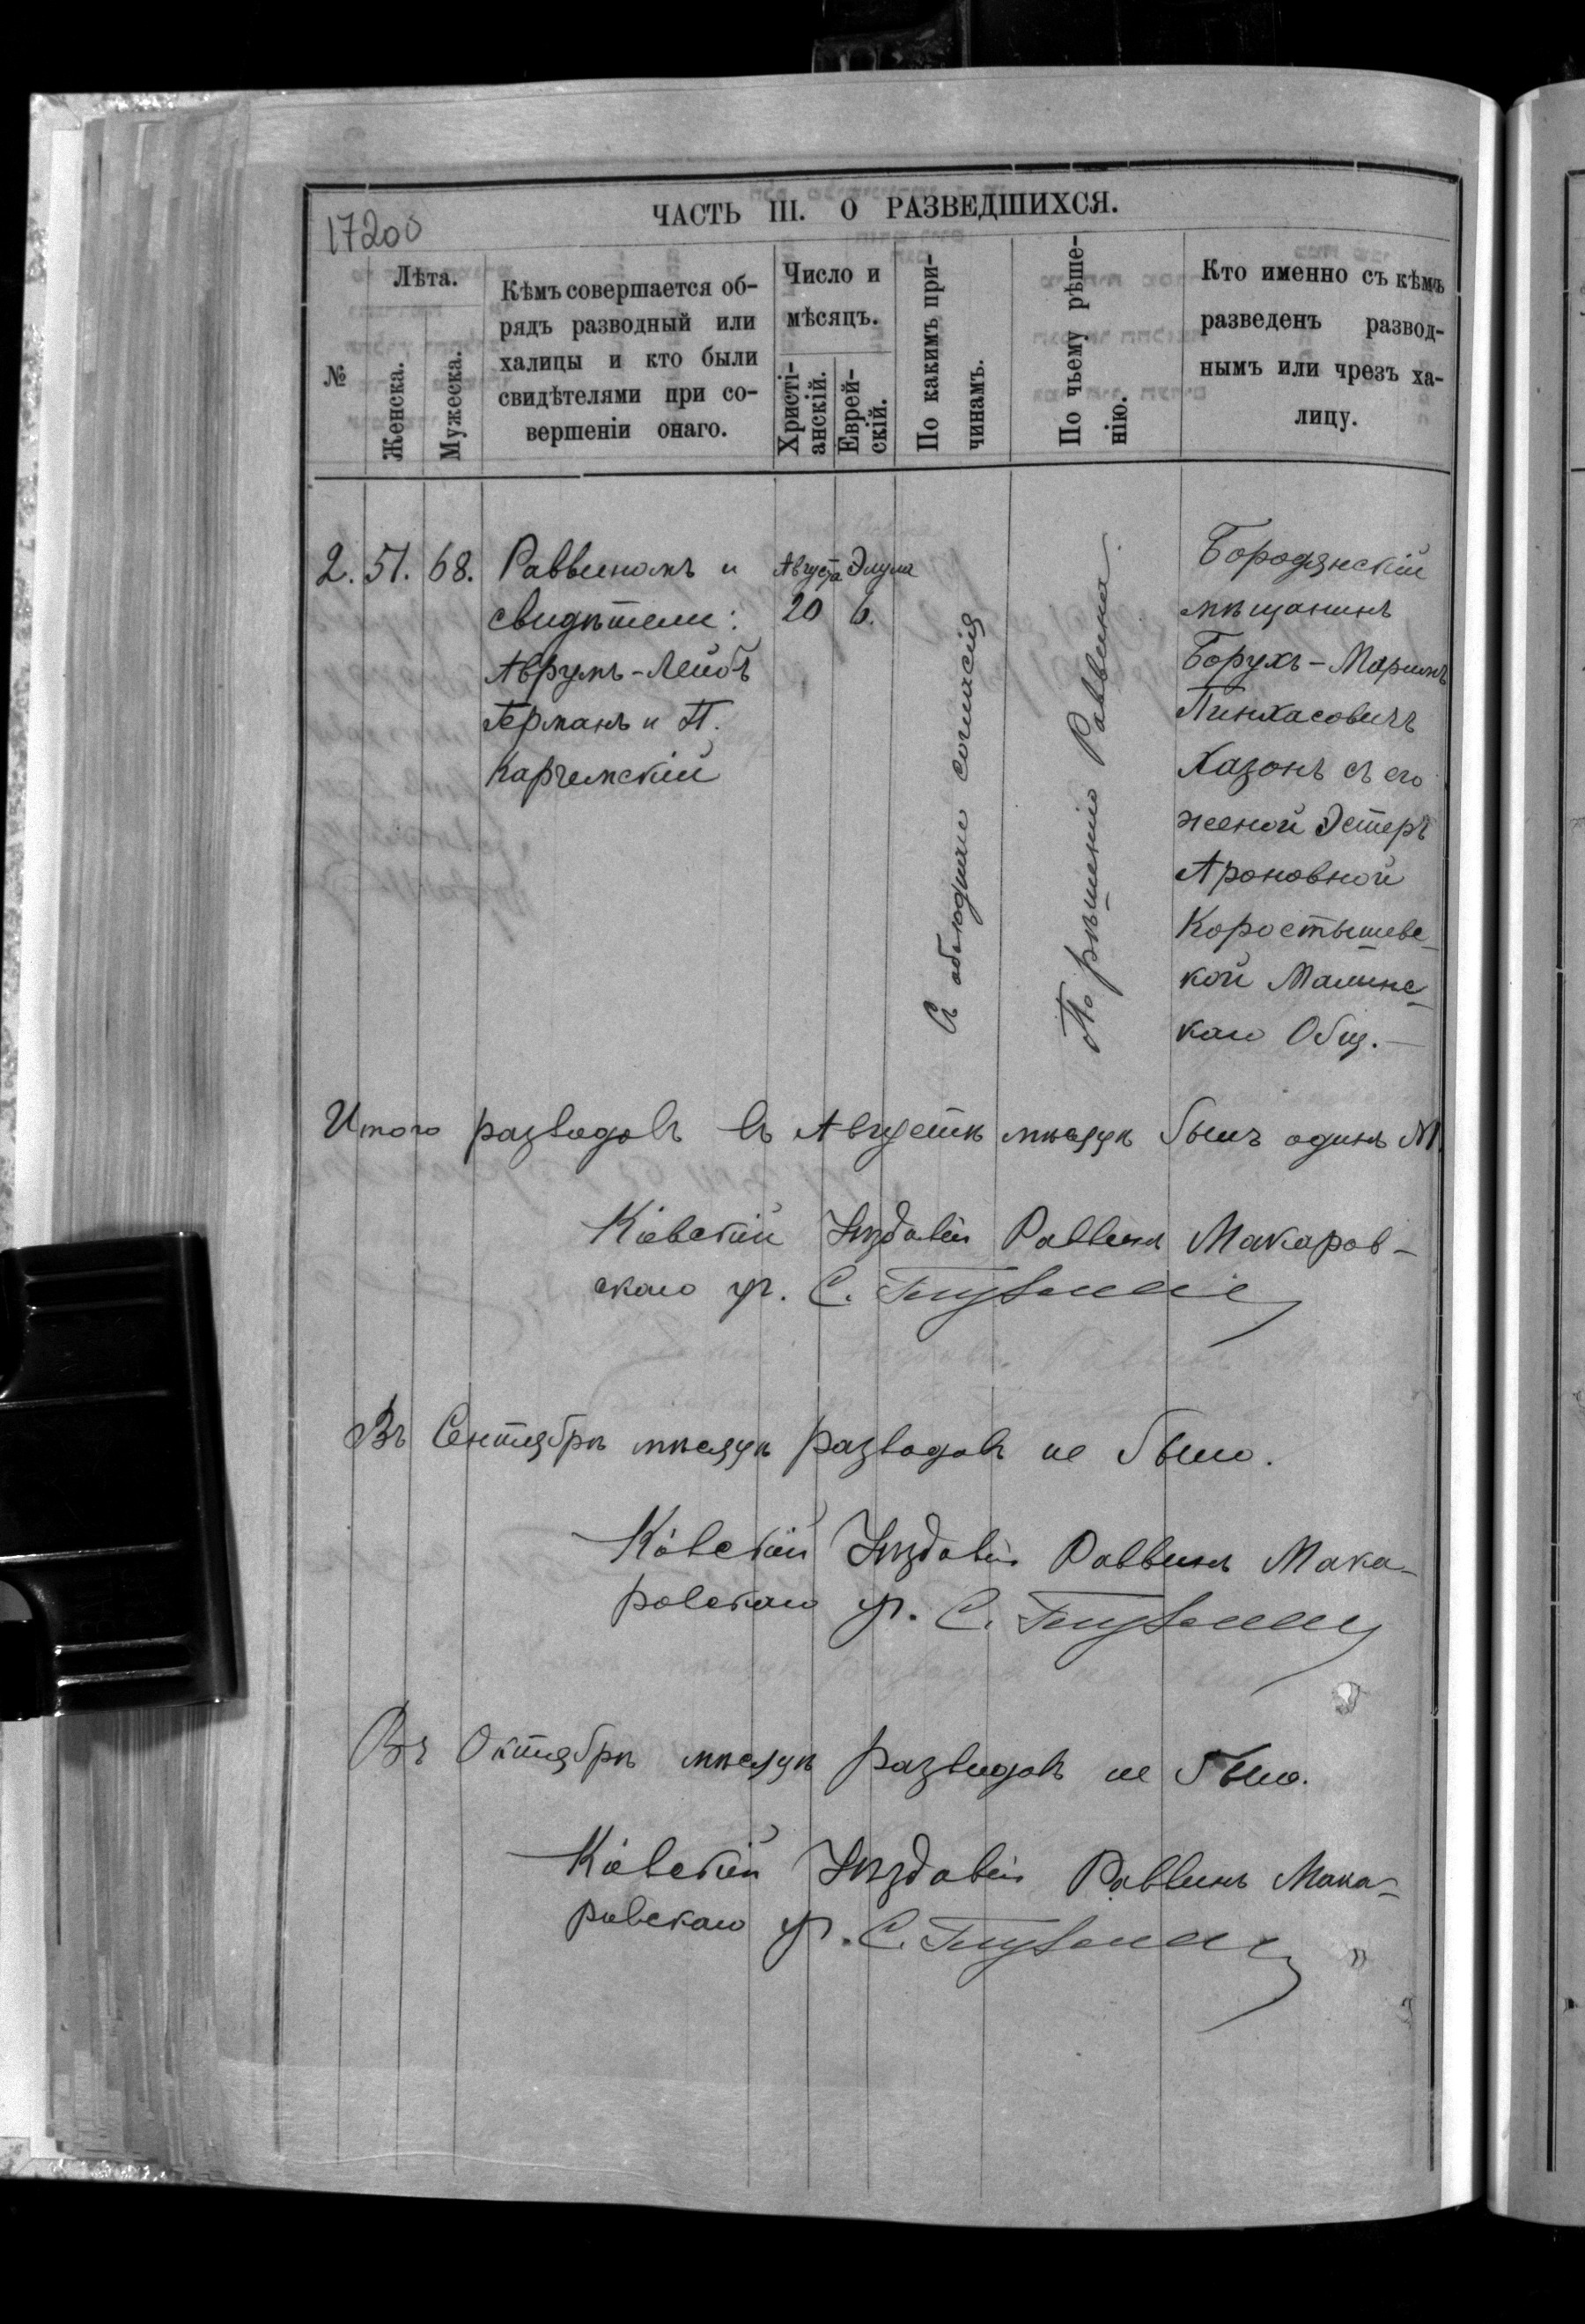 17200
ЧАСТЬ III. О РАЗВЕДШИХСЯ.
№
Лѣта.
Женска.
Мужеска.
Кѣмъ совершается об-
рядъ разводный или
халицы и кто были
свидѣтелями при со-
вершеніи онаго.
Число и
мѣсяцъ.
Христі-
анскій.
Еврей-
скій.
По какимъ при-
чинамъ.
По чьему рѣше-
нію.
Кто именно съ кѣмъ
разведенъ развод-
нымъ или чрезъ ха-
лицу.
2. 51. 68.
Раввиномъ и
свидѣтели:
Аврумъ-Лейбъ
Германъ и П.
Карчемскій
Августа
20
Элула
6.
Съ обоюднаго согласія
По рѣшенію Раввина.
Бородянскій
мѣщанинъ
Борухъ-Маримъ
Пинхасовичъ
Хазонъ съ его
женой Эстеръ
Ароновной
Коростышевс-
кой Малинс-
каго Общ. -
Итого разводовъ въ Августѣ мѣсяцѣ былъ одинъ №1
Кіевскій Уѣздный Раввинъ Макаров-
скаго уч. С.
Въ Сентябрѣ мѣсяцѣ разводовъ не было.
Кіевскій Уѣздный Раввинъ Мака-
ровскаго уч. С.
Въ Октябрѣ мѣсяцѣ разводовъ не было.
Кіевскій Уѣздный Раввинъ Мака-
ровскаго уч. С.